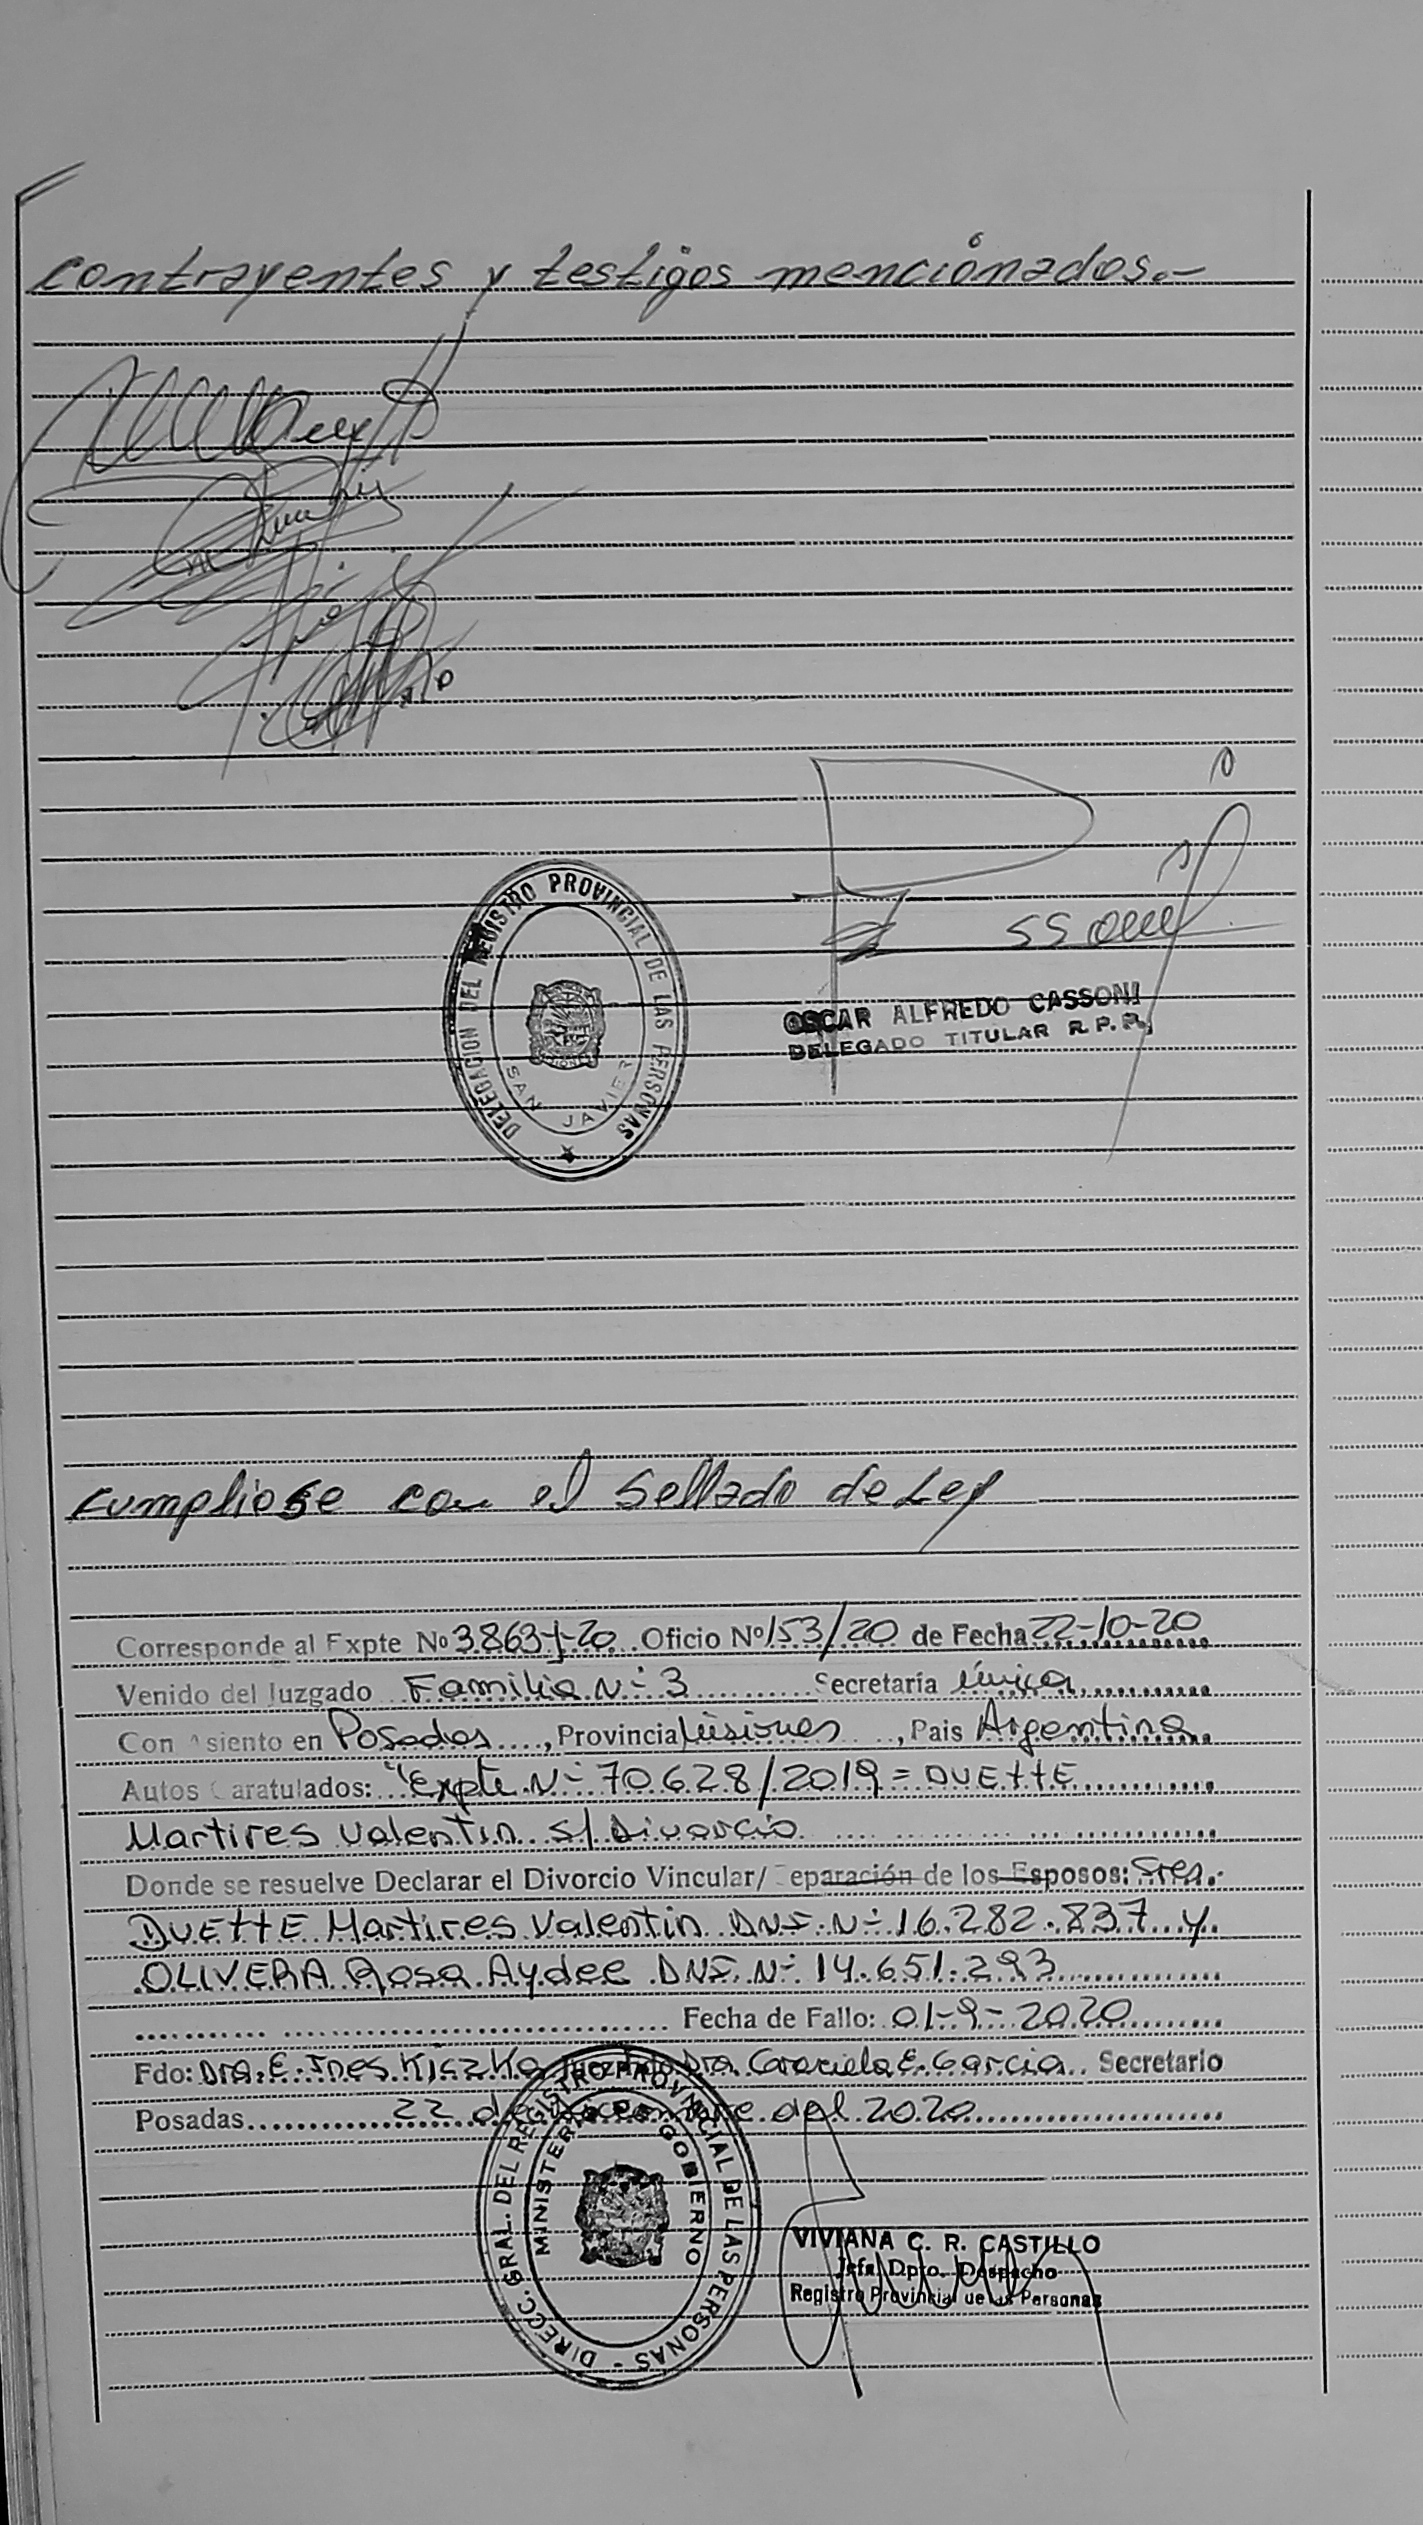 contrayentes y testigos mencionados.-
DELEGACION DEL REGISTRO PROVINCIAL DE LAS PERSONAS
SAN JAVIER
OSCAR ALFREDO CASSONI
DELEGADO TITULAR R.P.P.
cumpliose con el Sellado de Ley
Corresponde al Expte No 3863-J-20 Oficio Nº 153/20 de Fecha 22-10-20
Venido del Juzgado Familia N- 3 Secretaría única
Con Asiento en Posadas, Provincia Misiones, Pais Argentina
Autos Caratulados: "Expte N- 70628/2019 = DUETTE
Martires Valentin s/ Divorcio
Donde se resuelve Declarar el Divorcio Vincular/ Separación de los Esposos: Sres.
DUETTE Martires Valentin DNI. N- 16.282.837 y
OLIVERA Rosa Aydee DNI. N- 14.651.293
Fecha de Fallo: 01-9-2020
Fdo: Dra. E. Ines Kiszka Dra. Graciela E. Garcia Secretario
Posadas 22 de Diciembre del 2020
DIRECC. GRAL. DEL REGISTRO PROVINCIAL DE LAS PERSONAS -
MINISTERIO DE GOBIERNO
VIVIANA C. R. CASTILLO
Jefa Dpto. Despacho
Registro Provincial de las Personas